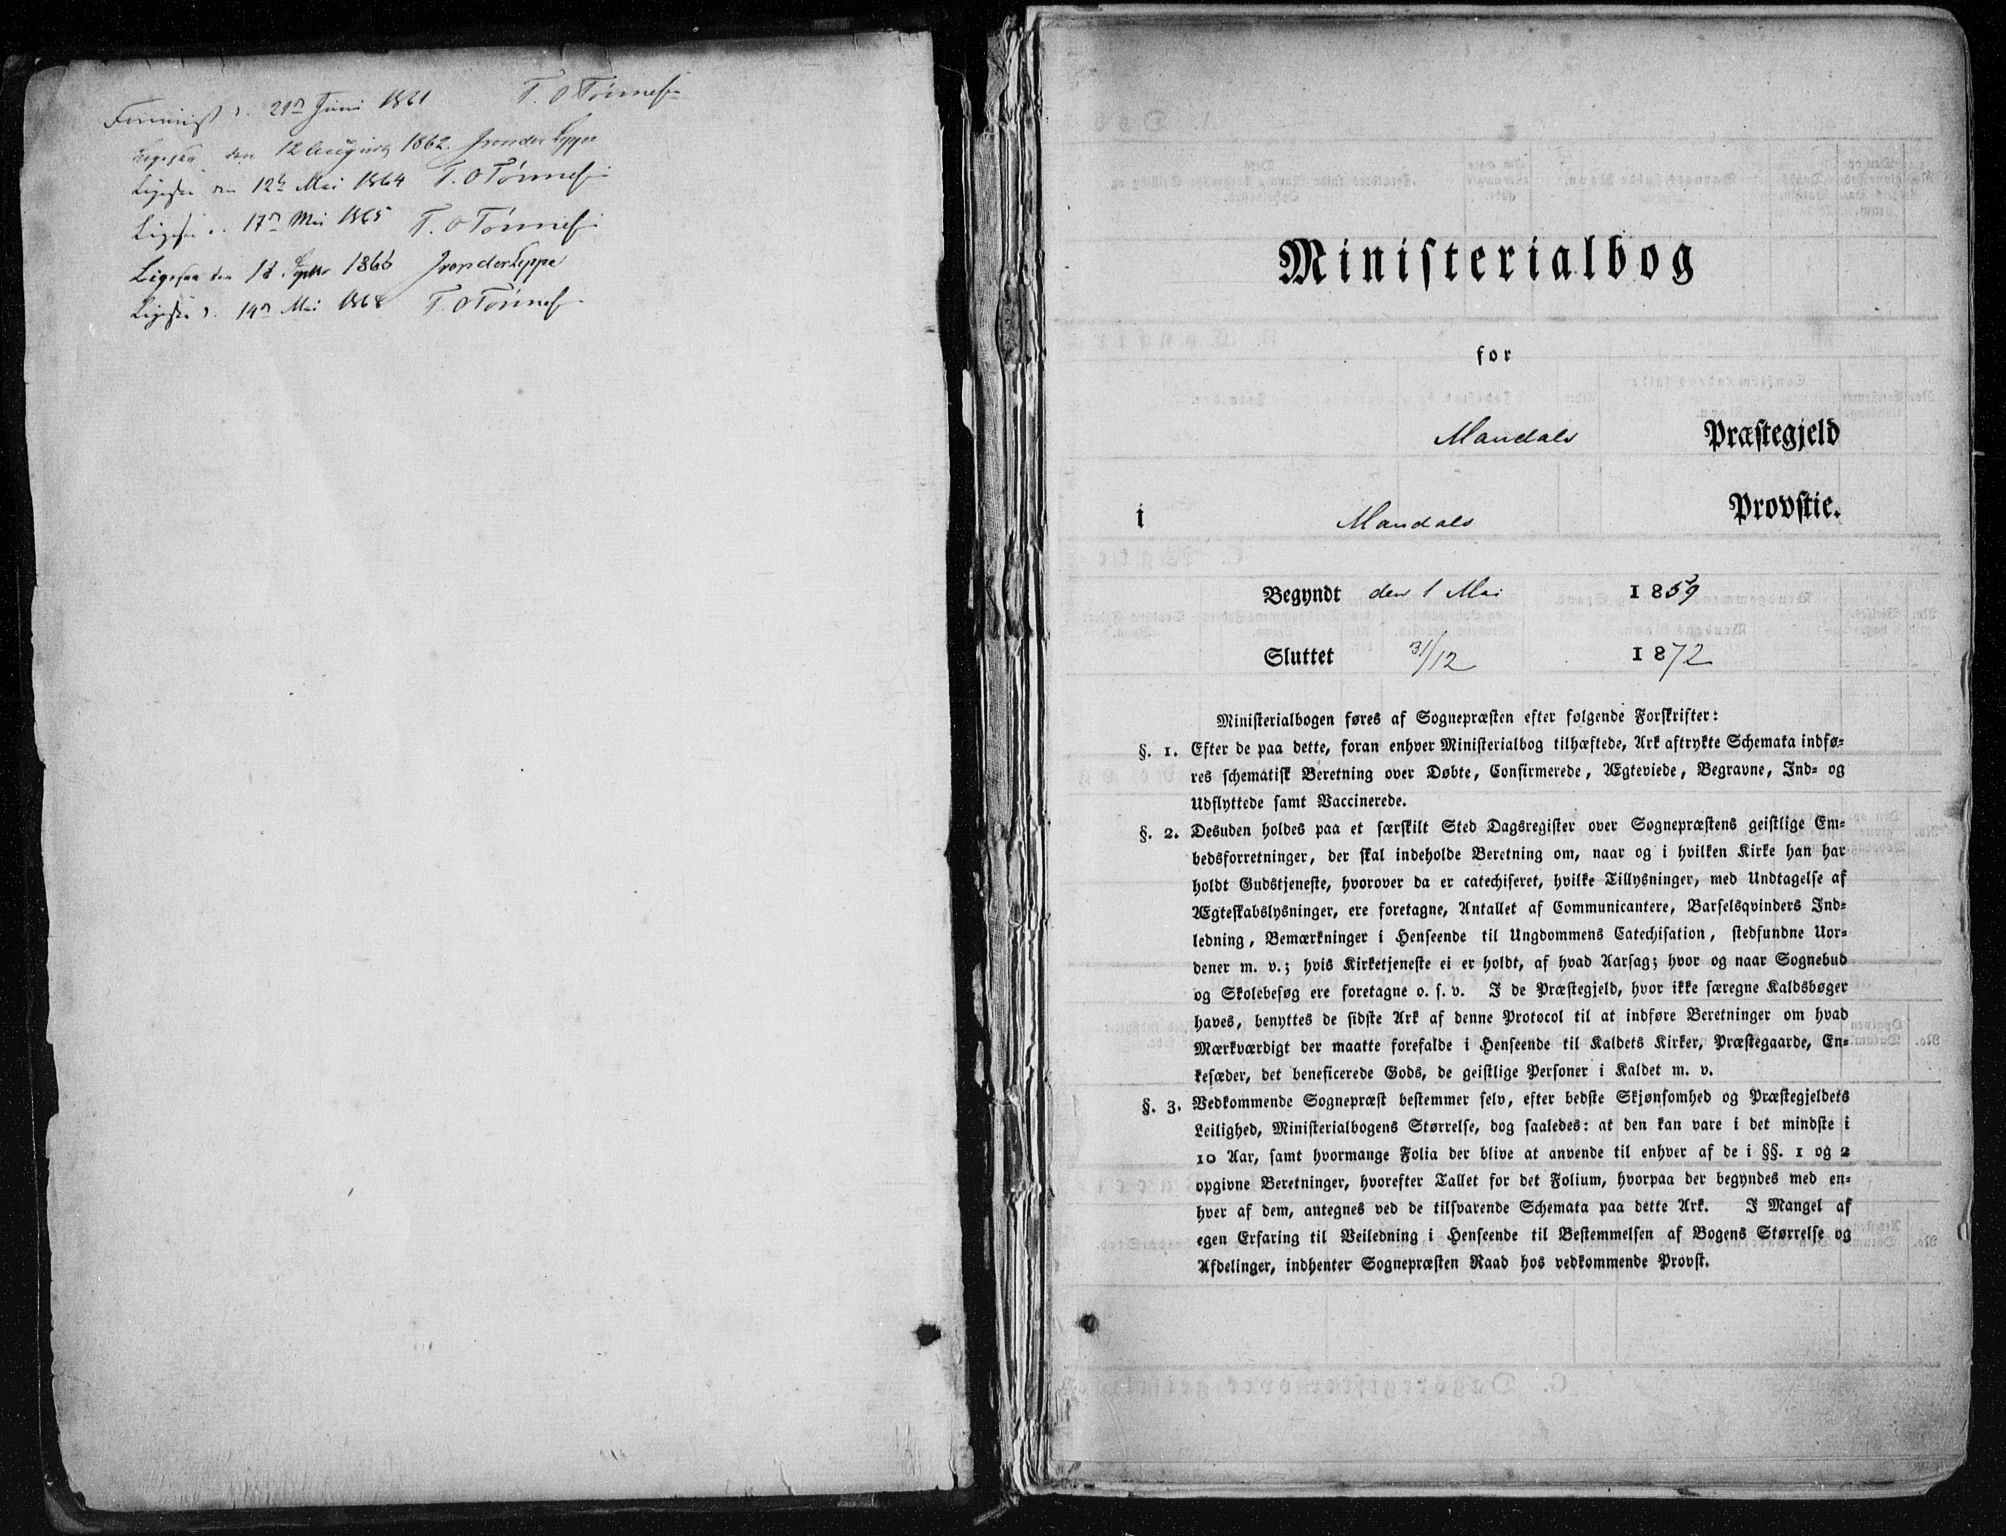 d. 21n Juni 1861 T. O Tönnesen
Ligesaa den 12 August 1862.
Ligesaa den 12te Mai 1864 T. O Tönnesen
Ligesaa d. 17n Mai 1865 T. O Tönnesen
Ligesaa den 18. Septbr 1866
Ligesaa d. 14n Mai 1868 T. O Tönnesen
Ministerialbog
for
Mandals Præstegjeld
i Mandals Provstie.
Begyndt den 1 Mai 1859
Sluttet 31/12 1872
Ministerialbogen føres af Sognepræsten efter følgende Forskrifter:
§. 1. Efter de paa dette, foran enhver Ministerialbog tilhæftede, Ark aftrykte Schemata indfø-
res schematisk Beretning over Døbte, Confirmerede, Ægteviede, Begravne, Ind- og
Udflyttede samt Vaccinerede.
§. 2. Desuden holdes paa et særskilt Sted Dagsregister over Sognepræstens geistlige Em-
bedsforretninger, der skal indeholde Beretning om, naar og i hvilken Kirke han har
holdt Gudstjeneste, hvorover da er catechiseret, hvilke Tillysninger, med Undtagelse af
Ægteskabslysninger, ere foretagne, Antallet af Communicantere, Barselsqvinders Ind-
ledning, Bemærkninger i Henseende til Ungdommens Catechisation, stedfundne Uor-
dener m. v.; hvis Kirketjeneste ei er holdt, af hvad Aarsag; hvor og naar Sognebud
og Skolebesøg ere foretagne o. s. v. I de Præstegjeld, hvor ikke særegne Kaldsbøger
haves, benyttes de sidste Ark af denne Protocol til at indføre Beretninger om hvad
Mærkværdigt der maatte forefalde i Henseende til Kaldets Kirker, Præstegaarde, En-
kesæder, det beneficerede Gods, de geistlige Personer i Kaldet m. v.
§. 3. Vedkommende Sognepræst bestemmer selv, efter bedste Skjønsomhed og Præstegjeldets
Leilighed, Ministerialbogens Størrelse, dog saaledes: at den kan vare i det mindste i
10 Aar, samt hvormange Folia der blive at anvende til enhver af de i §§. 1 og 2
opgivne Beretninger, hvorefter Tallet for det Folium, hvorpaa der begyndes med en-
hver af dem, antegnes ved de tilsvarende Schemata paa dette Ark. I Mangel af
egen Erfaring til Veiledning i Henseende til Bestemmelsen af Bogens Størrelse og
Afdelinger, indhenter Sognepræsten Raad hos vedkommende Provst.